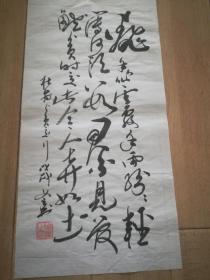 翻手作雲覆手雨紛〻輕
薄何須數君不見管
鮑貧時交此道今人棄如土
杜甫貧交行戊戌